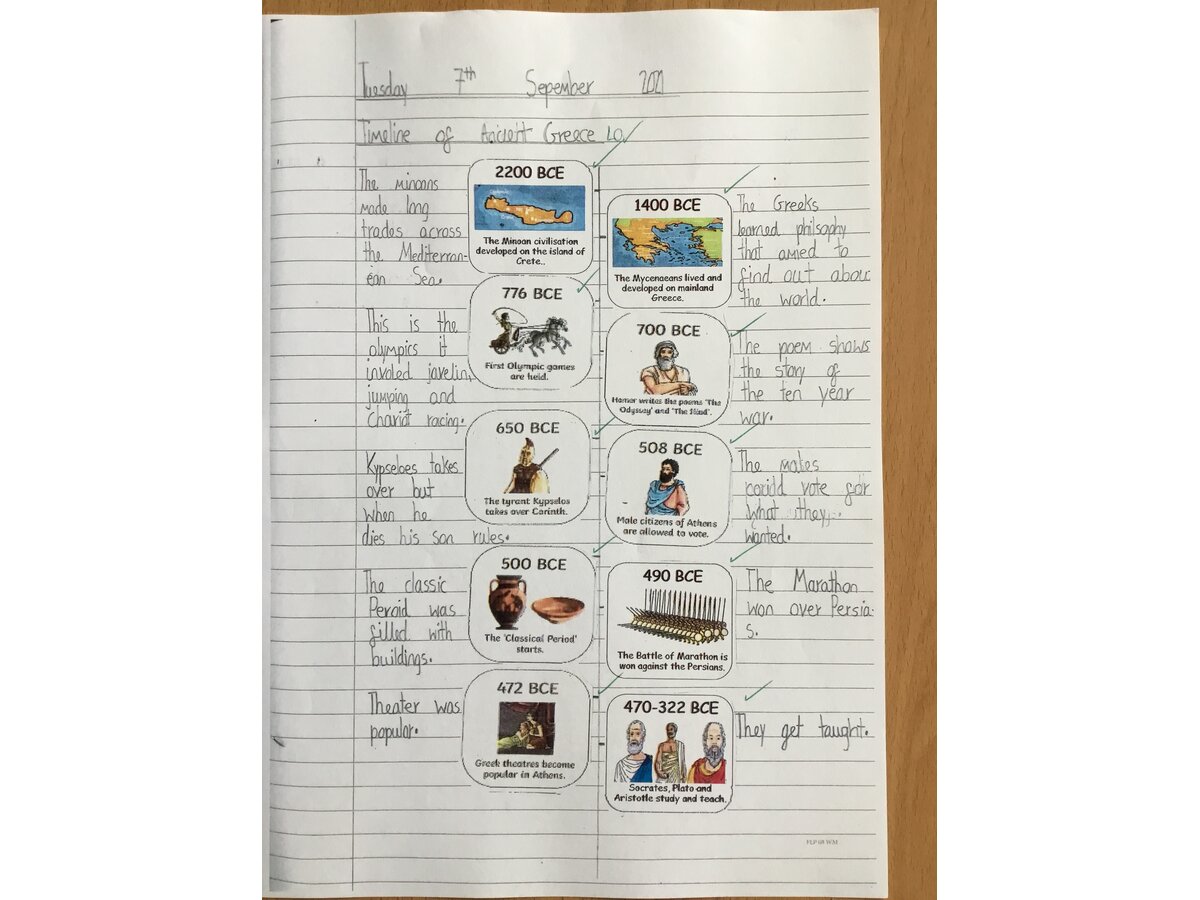 Tuesday 7th Sepember 2021
Timeline of Ancient Greece LO
2200 BCE
The Minoan civilisation
developed on the island of
Crete..
The minoans
made long
trades across
the Mediterran-
ean Sea.
1400 BCE
The Mycenaeans lived and
developed on mainland
Greece.
The Greeks
learned philsophy
that amied to
find out about
the world.
776 BCE
First Olympic games
are held.
This is the
olympics it
involed javelin,
jumping and
Chariot racing.
700 BCE
Homer writes the poems 'The
Odyssey' and 'The Iliad'.
The poem shows
the story of
the ten year
war.
650 BCE
The tyrant Kypselos
takes over Corinth.
Kypseloes takes
over but
when he
dies his son rules.
508 BCE
Male citizens of Athens
are allowed to vote.
The males
could vote for
what they
wanted.
500 BCE
The 'Classical Period'
starts.
The classic
Peroid was
filled with
buildings.
490 BCE
The Battle of Marathon is
won against the Persians.
The Marathon
won over Persia-
s.
472 BCE
Greek theatres become
popular in Athens.
Theater was
popular.
470-322 BCE
Socrates, Plato and
Aristotle study and teach.
They get taught.
FLP 68 WM